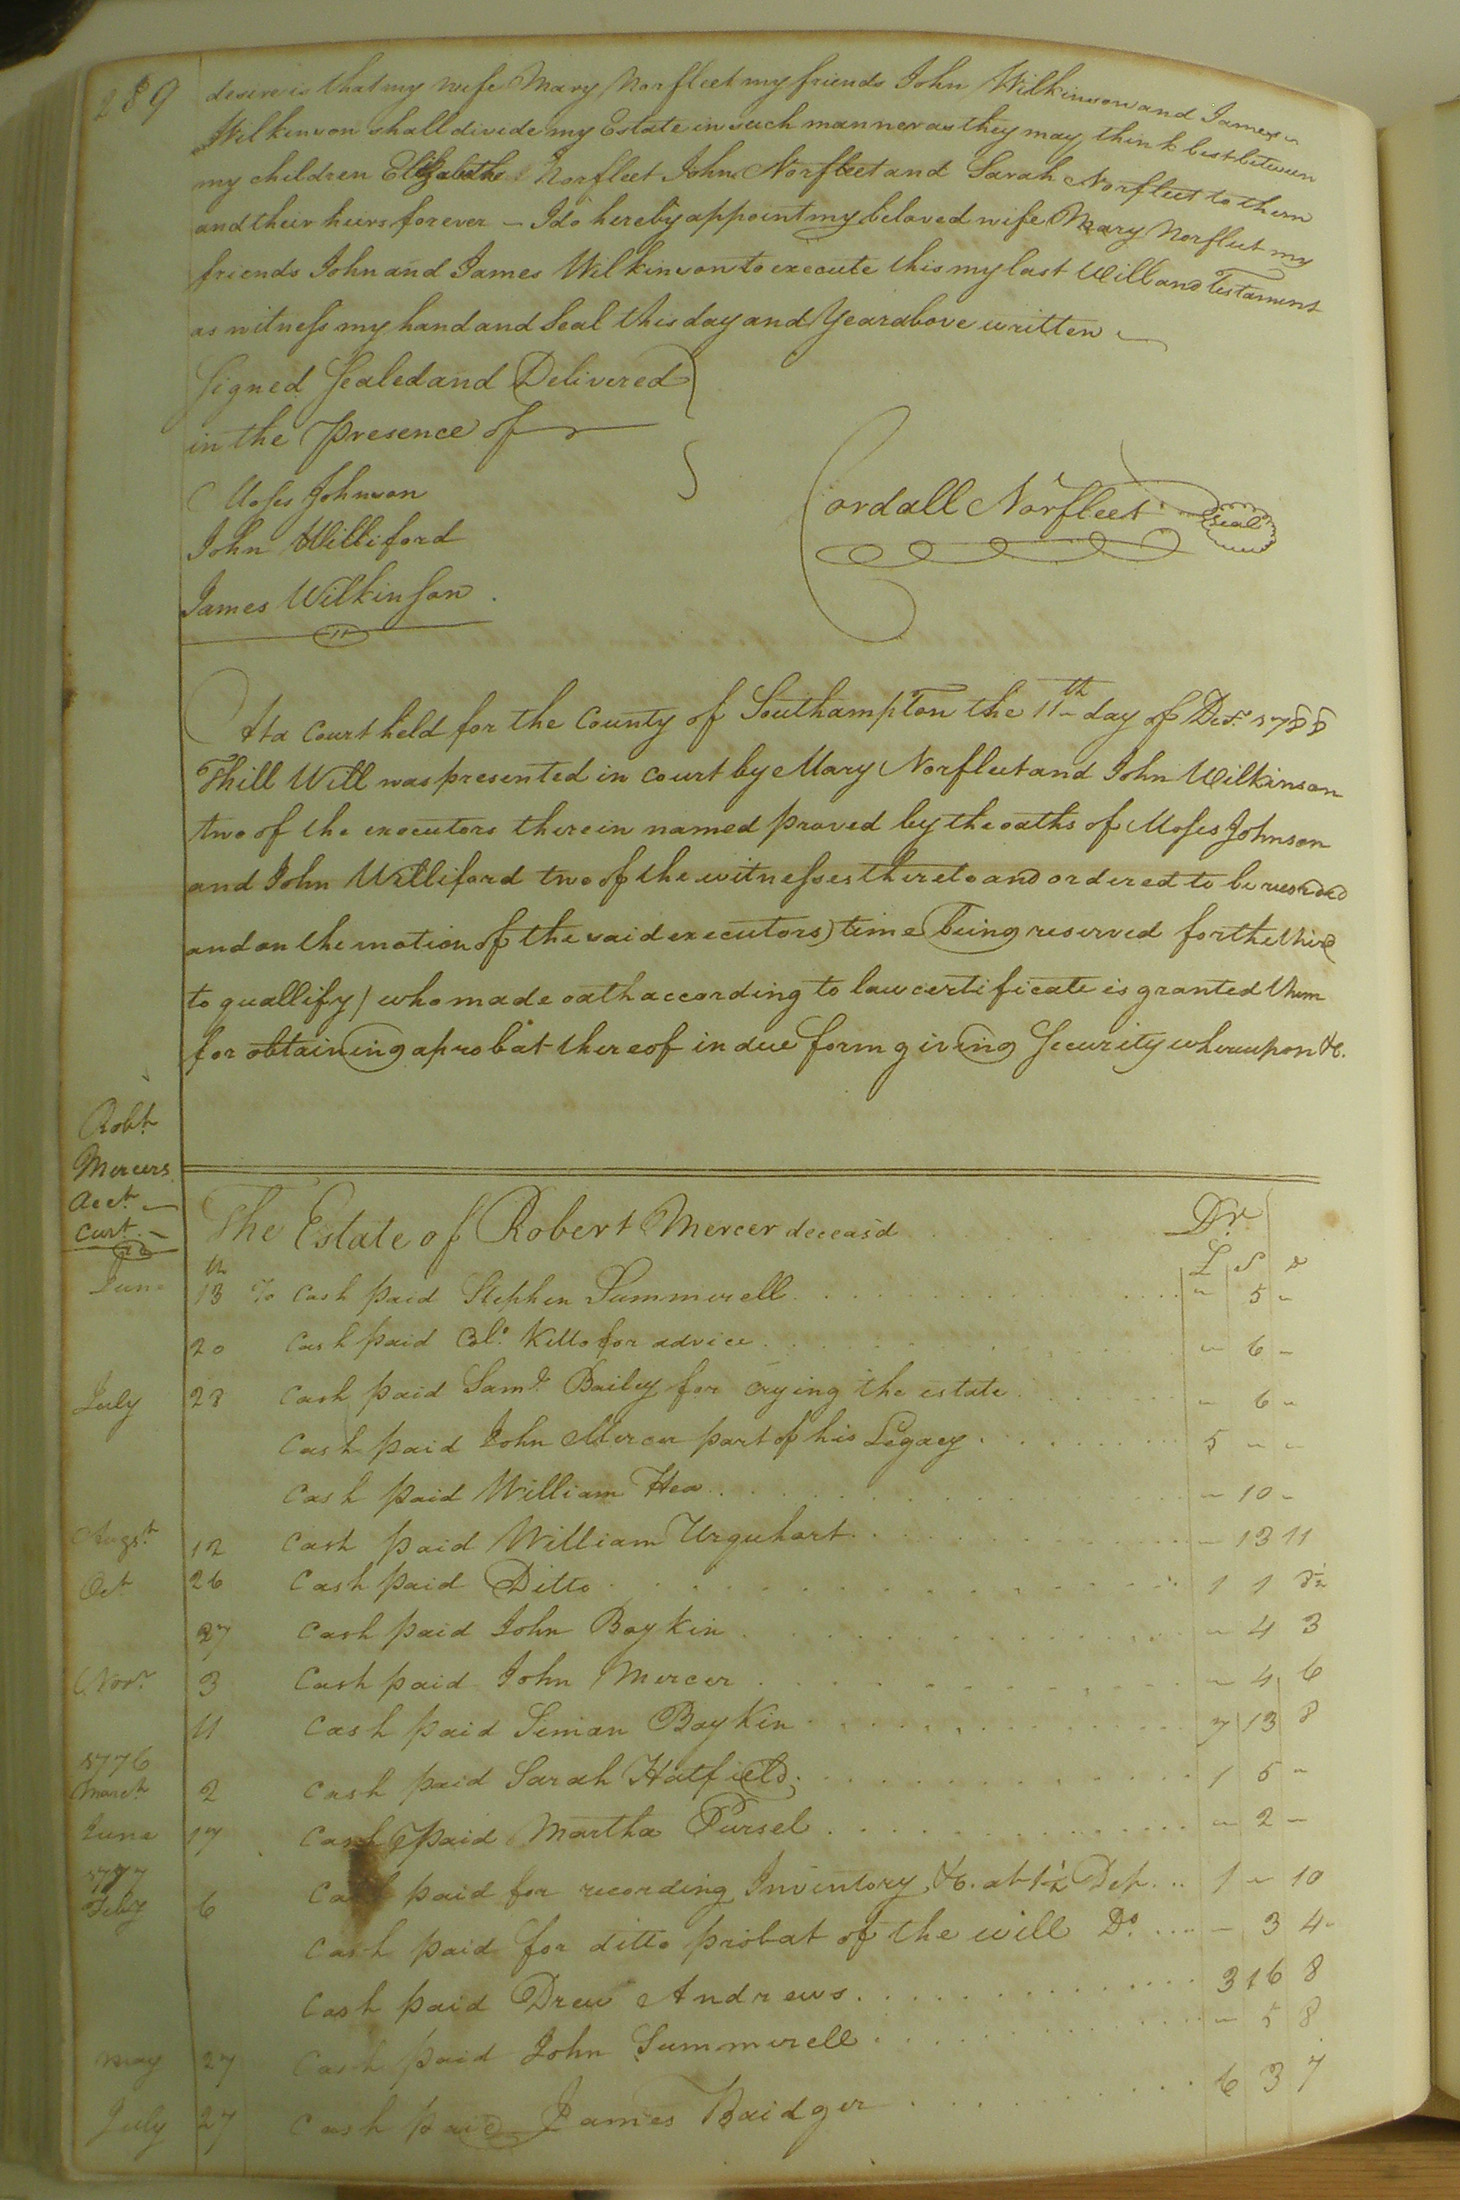 289
desire is that my wife Mary Norfleet my friends John Wilkinson and James
Wilkinson shall divide my Estate in such manner as they may think best between
my children Elizabeth Norfleet John Norfleet and Sarah Norfleet to them
and their heirs forever – I do hereby appoint my beloved wife Mary Norfleet my
friends John and James Wilkinson to execute this my last Will and Testament
as witness my hand and Seal this day and Year above written
Signed Sealed and Delivered
in the Presence of
Moses Johnson
John Williford
James Wilkinson
Cordall Norfleet Seal
At a Court held for the County of Southampton the 11th day of Decr. 1788
Thill Will was presented in Court by Mary Norfleet and John Wilkinson
two of the executors therein named proved by the oaths of Moses Johnson
and John Williford two of the witnesses thereto and ordered to be recorded
and on the motion of the said executors) time being reserved for the third
to quallify) who made oath according to law certificate is granted them
for obtaining a probat thereof in due form giving Security whereupon &c.
Robt.
Mercers
acct.
Curt.
The Estate of Robert Mercer deceasd Dr.
£ S D
June 13th To Cash paid Stephen Summerell " 5 "
20 Cash paid Col. Kello for advice " 6 "
July 23 Cash paid Saml. Bailey for crying the estate " 6 "
Cash paid John Mercer part of his Legacy 5 " "
Cash paid William Hea " 10 "
Augst. 12 Cash paid William Urquhart " 13 11
Oct 26 Cash paid Ditto 1 1 3½
27 Cash paid John Boykin " 4 3
Novr. 3 Cash paid John Mercer " 4 6
11 Cash paid Simon Boykin 7 13 8
1776
March 2 Cash paid Sarah Hatfield 1 5 "
June 17 Cash paid Martha Pursel " 2 "
1777
Feby 6 Cash paid for recording Inventory &c. at 1½ Dep. 1 " 10
Cash paid for ditto probat of the will Do. " 3 4
Cash paid Drew Andrews 3 16 8
May 27 Cash paid John Summerell " 5 8
July 27 Cash paid James Bridger 6 3 7